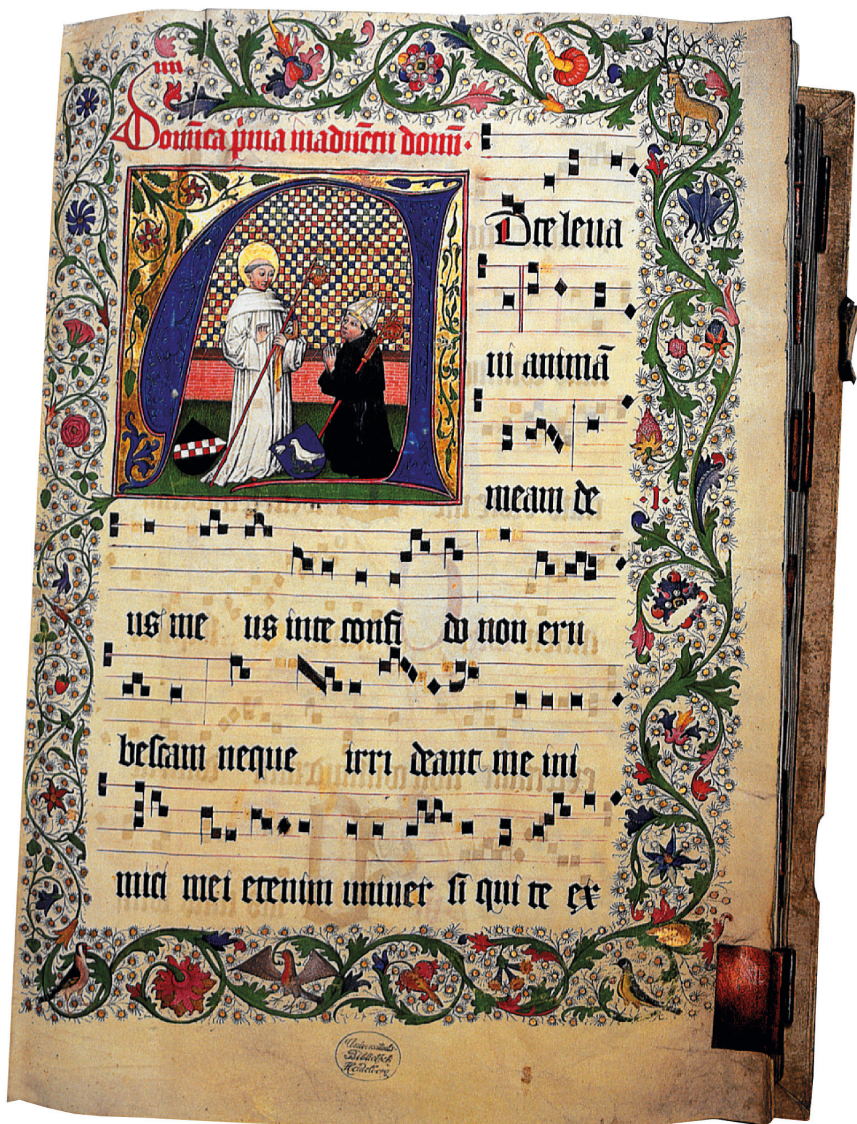 Domīca p̄ma inaduētu domī·
A
Dte leua
ui animā
meam de
·I·
us me us inte confi do non eru
bescam neque irri deant me ini
mici mei etenim uniuer si qui te ex
Universitäts-
Bibliothek
Heidelberg